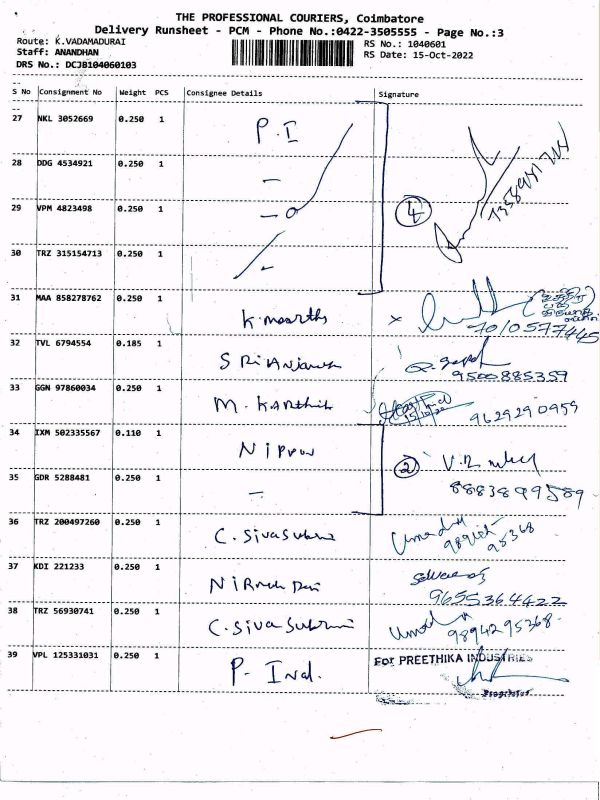 THE PROFESSIONAL COURIERS, Coimbatore
Delivery Runsheet - PCM - Phone No.:0422-3505555 - Page No.:3
Route: K.VADAMADURAI
RS No.: 1040601
Staff: ANANDHAN
RS Date: 15-Oct-2022
DRS No.: DCJB104060103
S No Consignment No Weight PCS Consignee Details Signature
27 NKL 3052669 0.250 1 P.I
28 DDG 4534921 0.250 1 –
29 VPM 4823498 0.250 1 –
④
30 TRZ 315154713 0.250 1 –
31 MAA 858278762 0.250 1 K. moorthy x
7010577445
32 TVL 6794554 0.185 1
9500885359
33 GGN 97860034 0.250 1 M. KARthik
9629290959
34 IXM 502335567 0.110 1 Nippon ②
35 GDR 5288481 0.250 1 –
8883899589
36 TRZ 200497260 0.250 1 C. Sivasubra
37 KDI 221233 0.250 1
9655364422
38 TRZ 56930741 0.250 1 C. Siva Subrmi
9894295368
39 VPL 125331031 0.250 1 P. Ind.
For PREETHIKA INDUSTRIES
Proprietor